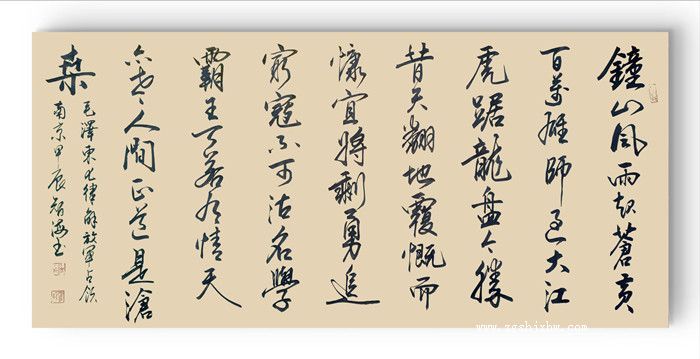 鐘山風雨起蒼黃
百萬雄師過大江
虎踞龍盤今勝
昔天翻地覆慨而
慷宜將剩勇追
窮寇不可沽名學
霸王天若有情天
亦老人間正道是滄
桑
毛澤東七律解放軍占領
南京甲辰智海書